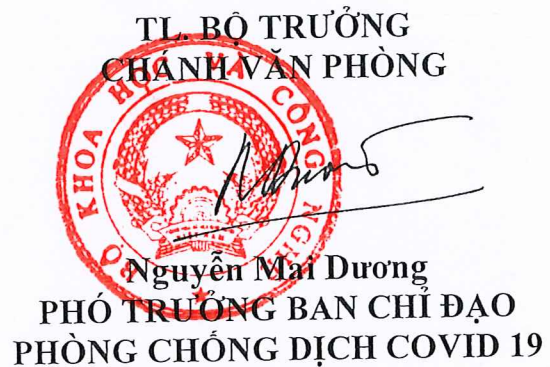 TL. BỘ TRƯỞNG
CHÁNH VĂN PHÒNG
BỘ KHOA HỌC VÀ CÔNG NGHỆ
Nguyễn Mai Dương
PHÓ TRƯỞNG BAN CHỈ ĐẠO
PHÒNG CHỐNG DỊCH COVID 19